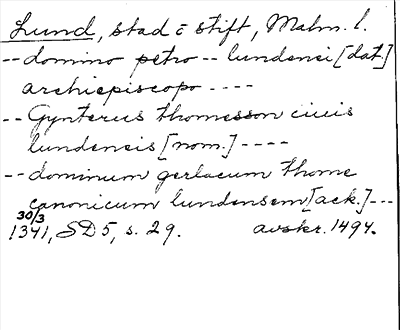 Lund, stad o stift, Malm. l.
-- domino petro -- lundensi [dat.]
archiepiscopo ----
-- Gynterus thomesson ciuis
lundensis [nom.] ----
-- dominum gerlacum thome
canonicum lundensem [ack.] ---
30/3
1341, SD 5, s. 29. avskr. 1494.